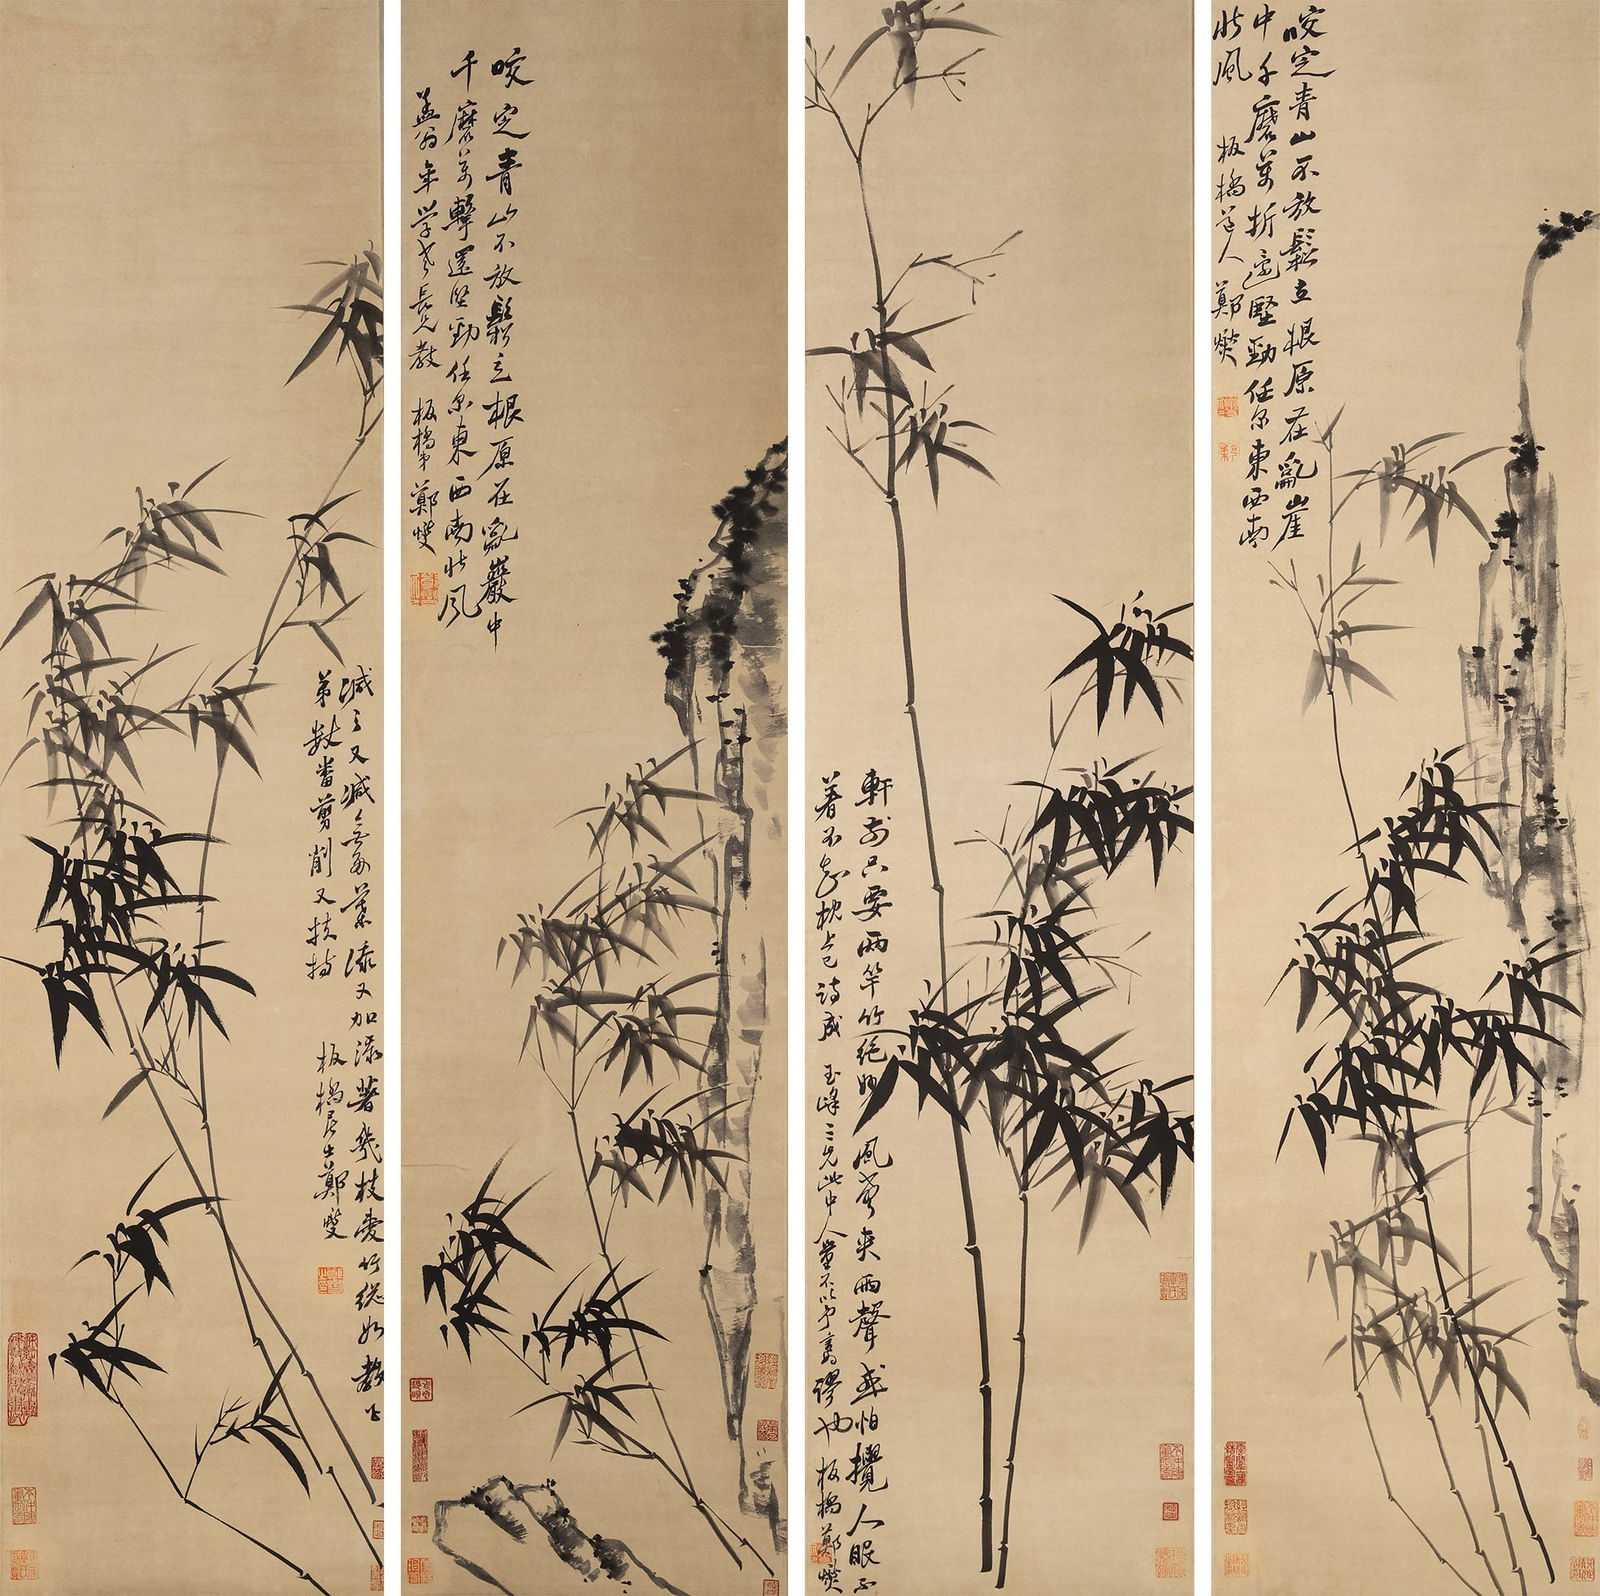 咬定青山不放鬆立根原在亂崖
中千磨萬折還堅勁任尔東西南
北風 板橋道人鄭燮
軒前只要兩竿竹絕妙風聲夾雨聲或怕攪人眠不
着不知枕上已詩成 玉峰三兄此中人當不以予言謬也 板橋鄭燮
咬定青山不放鬆立根原在亂巖中
千磨萬擊還堅勁任尔東西南北風
孟翁年學老長兄教 板橋弟鄭燮
減之又減無多葉添又加添著幾枝愛竹總如教子
弟數番剪削又扶持 板橋居士鄭燮